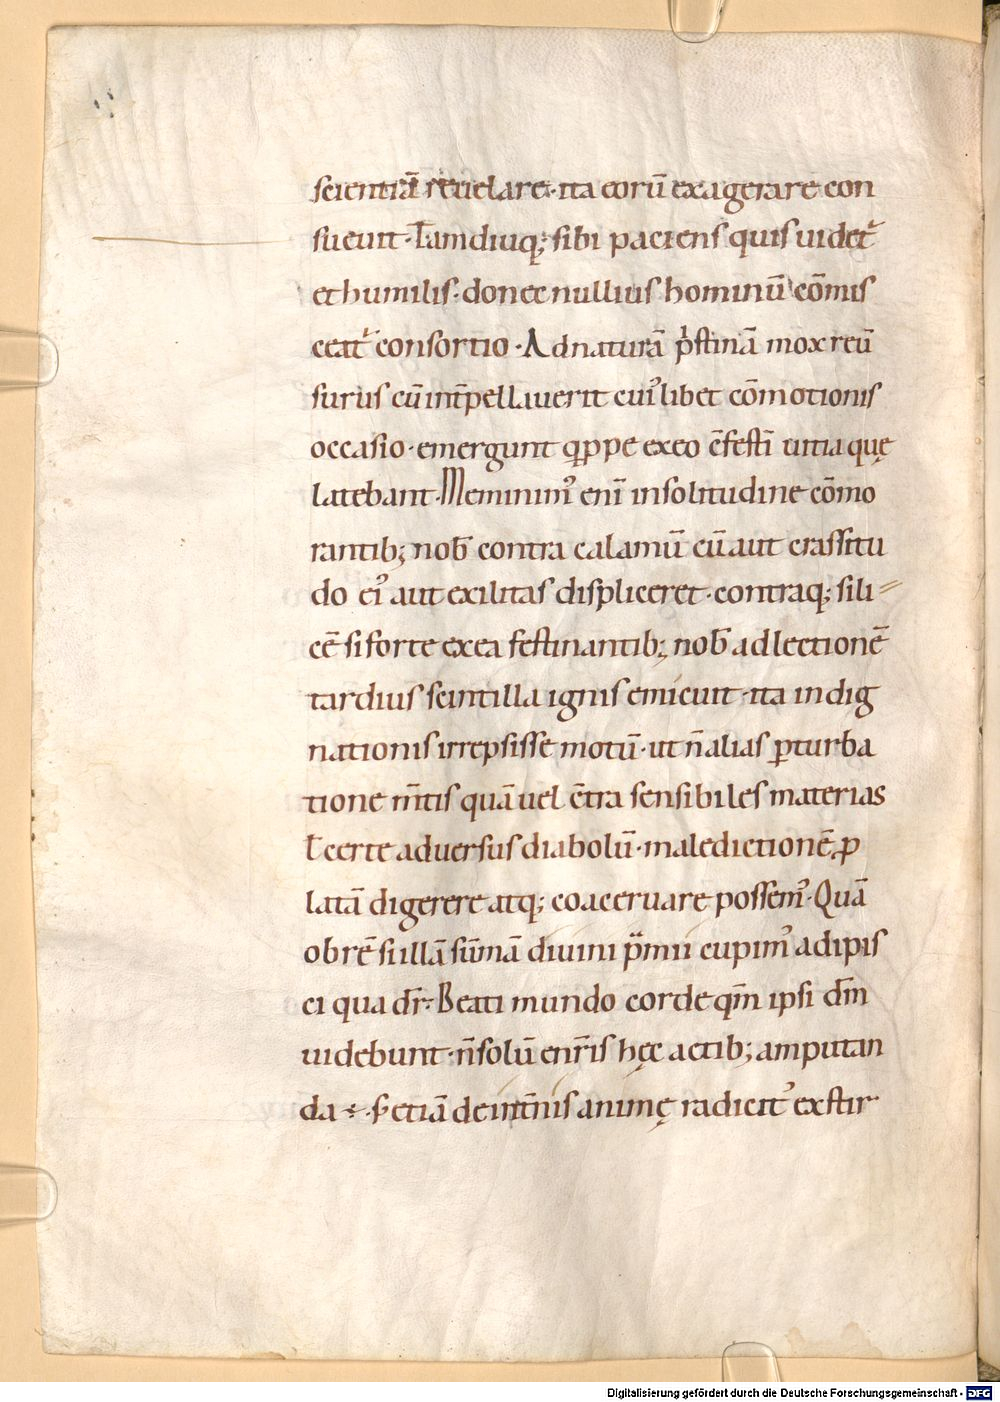 scientiā reuelare· ita eorū exagerare con
sueuit· Tamdiuq; sibi paciens quis uidet᷑
et humilis· donec nullius hominū cōmis
ceat᷑ consortio· Ad naturā p̍stinā mox reū
surus cū int̄pellauerit cuiꝰlibet cōmotionis
occasio· emergunt q̍ppe ex eo c̄festī uitia quę
latebant· Meminimꝰ enī in solitudine cōmo
rantib; nob̄ contra calamū cū aut crassitu
do eiꝰ aut exilitas displiceret· contraq; sili
cē si forte ex ea festinantib; nob̄ ad lectionē
tardius scintilla ignis emicuit· ita indig
nationis irrepsisse motū· ut n̄ alias ꝑturba
tione m̄tis quā uel c̄tra sensibiles materias
ł certe aduersus diabolū· maledictionē ꝓ
latā digerere atq; coaceruare possemꝰ· Quā
obrē si illā sūmā diuini p̄mii cupimꝰ adipis
ci qua dr̄· Beati mundo corde qm̄ ipsi dm̄
uidebunt· n̄ solū e nr̄is hęc actib; amputan
da ÷· s; etiā de int̄nis animę radicitꝰ exstir
Digitalisierung gefördert durch die Deutsche Forschungsgemeinschaft - DFG